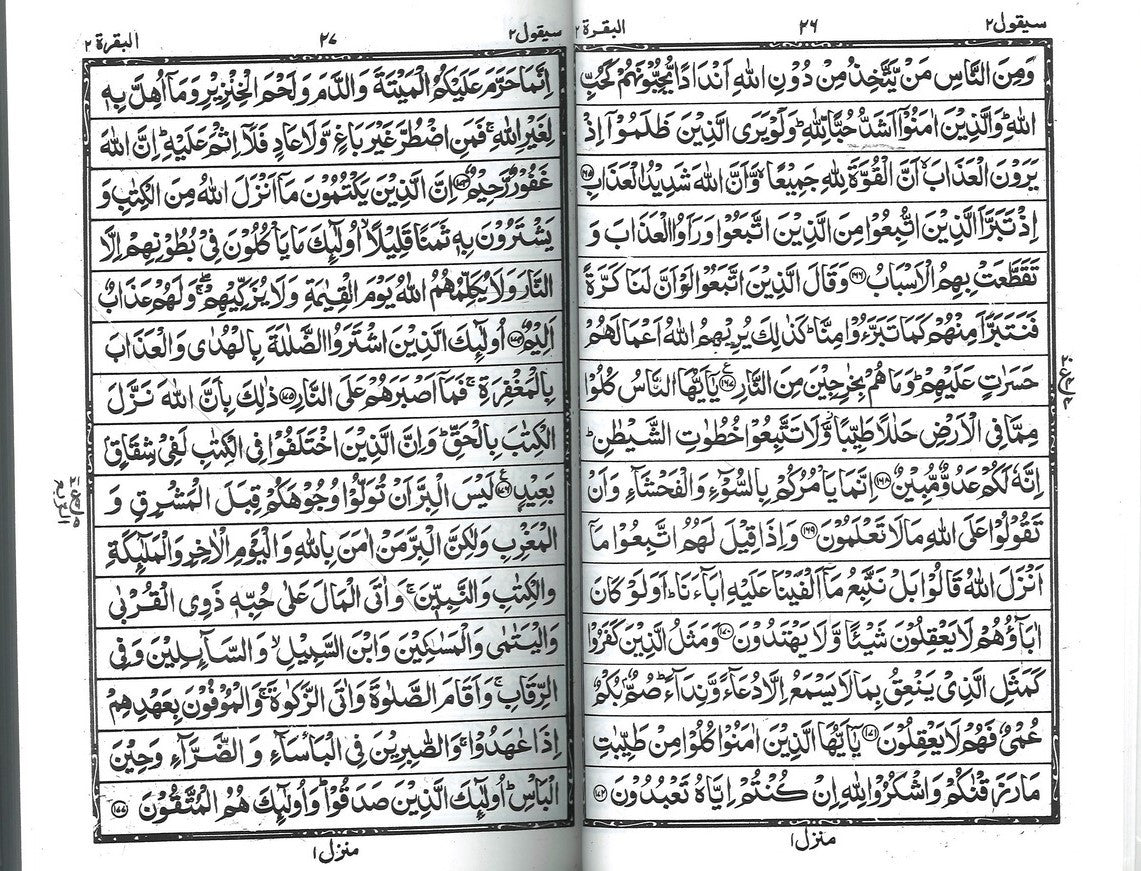 سیقول ٢
٢٦
البقرة ٢
وَمِنَ النَّاسِ مَنْ يَّتَّخِذُ مِنْ دُوْنِ اللّٰهِ اَنْدَادًا يُّحِبُّوْنَهُمْ كَحُبِّ
اللّٰهِ ؕ وَالَّذِيْنَ اٰمَنُوْۤا اَشَدُّ حُبًّا لِّلّٰهِ ؕ وَلَوْ يَرَى الَّذِيْنَ ظَلَمُوْۤا اِذْ
يَرَوْنَ الْعَذَابَ ۙ اَنَّ الْقُوَّةَ لِلّٰهِ جَمِيْعًا ۙ وَّاَنَّ اللّٰهَ شَدِيْدُ الْعَذَابِ ١٦٥
اِذْ تَبَرَّاَ الَّذِيْنَ اتُّبِعُوْا مِنَ الَّذِيْنَ اتَّبَعُوْا وَرَاَوُا الْعَذَابَ وَ
تَقَطَّعَتْ بِهِمُ الْاَسْبَابُ ١٦٦ وَقَالَ الَّذِيْنَ اتَّبَعُوْا لَوْ اَنَّ لَنَا كَرَّةً
فَنَتَبَرَّاَ مِنْهُمْ كَمَا تَبَرَّءُوْا مِنَّا ؕ كَذٰلِكَ يُرِيْهِمُ اللّٰهُ اَعْمَالَهُمْ
حَسَرٰتٍ عَلَيْهِمْ ؕ وَمَا هُمْ بِخٰرِجِيْنَ مِنَ النَّارِ ١٦٧ يٰۤاَيُّهَا النَّاسُ كُلُوْا
مِمَّا فِى الْاَرْضِ حَلٰلًا طَيِّبًا ۖ وَّلَا تَتَّبِعُوْا خُطُوٰتِ الشَّيْطٰنِ ؕ
اِنَّهٗ لَكُمْ عَدُوٌّ مُّبِيْنٌ ١٦٨ اِنَّمَا يَاْمُرُكُمْ بِالسُّوْٓءِ وَالْفَحْشَآءِ وَاَنْ
تَقُوْلُوْا عَلَى اللّٰهِ مَا لَا تَعْلَمُوْنَ ١٦٩ وَاِذَا قِيْلَ لَهُمُ اتَّبِعُوْا مَاۤ
اَنْزَلَ اللّٰهُ قَالُوْا بَلْ نَتَّبِعُ مَاۤ اَلْفَيْنَا عَلَيْهِ اٰبَآءَنَا ؕ اَوَلَوْ كَانَ
اٰبَآؤُهُمْ لَا يَعْقِلُوْنَ شَيْـًٔا وَّلَا يَهْتَدُوْنَ ١٧٠ وَمَثَلُ الَّذِيْنَ كَفَرُوْا
كَمَثَلِ الَّذِىْ يَنْعِقُ بِمَا لَا يَسْمَعُ اِلَّا دُعَآءً وَّنِدَآءً ؕ صُمٌّۢ بُكْمٌ
عُمْىٌ فَهُمْ لَا يَعْقِلُوْنَ ١٧١ يٰۤاَيُّهَا الَّذِيْنَ اٰمَنُوْا كُلُوْا مِنْ طَيِّبٰتِ
مَا رَزَقْنٰكُمْ وَاشْكُرُوْا لِلّٰهِ اِنْ كُنْتُمْ اِيَّاهُ تَعْبُدُوْنَ ١٧٢
منزل ١
سیقول ٢
٢٧
البقرة ٢
اِنَّمَا حَرَّمَ عَلَيْكُمُ الْمَيْتَةَ وَالدَّمَ وَلَحْمَ الْخِنْزِيْرِ وَمَاۤ اُهِلَّ بِهٖ
لِغَيْرِ اللّٰهِ ۚ فَمَنِ اضْطُرَّ غَيْرَ بَاغٍ وَّلَا عَادٍ فَلَاۤ اِثْمَ عَلَيْهِ ؕ اِنَّ اللّٰهَ
غَفُوْرٌ رَّحِيْمٌ ١٧٣ اِنَّ الَّذِيْنَ يَكْتُمُوْنَ مَاۤ اَنْزَلَ اللّٰهُ مِنَ الْكِتٰبِ وَ
يَشْتَرُوْنَ بِهٖ ثَمَنًا قَلِيْلًا ۙ اُولٰٓئِكَ مَا يَاْكُلُوْنَ فِىْ بُطُوْنِهِمْ اِلَّا
النَّارَ وَلَا يُكَلِّمُهُمُ اللّٰهُ يَوْمَ الْقِيٰمَةِ وَلَا يُزَكِّيْهِمْ ۖۚ وَلَهُمْ عَذَابٌ
اَلِيْمٌ ١٧٤ اُولٰٓئِكَ الَّذِيْنَ اشْتَرَوُا الضَّلٰلَةَ بِالْهُدٰى وَالْعَذَابَ
بِالْمَغْفِرَةِ ۚ فَمَاۤ اَصْبَرَهُمْ عَلَى النَّارِ ١٧٥ ذٰلِكَ بِاَنَّ اللّٰهَ نَزَّلَ
الْكِتٰبَ بِالْحَقِّ ؕ وَاِنَّ الَّذِيْنَ اخْتَلَفُوْا فِى الْكِتٰبِ لَفِىْ شِقَاقٍۢ
بَعِيْدٍ ١٧٦ لَيْسَ الْبِرَّ اَنْ تُوَلُّوْا وُجُوْهَكُمْ قِبَلَ الْمَشْرِقِ وَ
الْمَغْرِبِ وَلٰكِنَّ الْبِرَّ مَنْ اٰمَنَ بِاللّٰهِ وَالْيَوْمِ الْاٰخِرِ وَالْمَلٰٓئِكَةِ
وَالْكِتٰبِ وَالنَّبِيّٖنَ ۚ وَاٰتَى الْمَالَ عَلٰى حُبِّهٖ ذَوِى الْقُرْبٰى
وَالْيَتٰمٰى وَالْمَسٰكِيْنَ وَابْنَ السَّبِيْلِ ۙ وَالسَّآئِلِيْنَ وَفِى
الرِّقَابِ ۚ وَاَقَامَ الصَّلٰوةَ وَاٰتَى الزَّكٰوةَ ۚ وَالْمُوْفُوْنَ بِعَهْدِهِمْ
اِذَا عٰهَدُوْا ۚ وَالصّٰبِرِيْنَ فِى الْبَاْسَآءِ وَ الضَّرَّآءِ وَحِيْنَ
الْبَاْسِ ؕ اُولٰٓئِكَ الَّذِيْنَ صَدَقُوْا ؕ وَاُولٰٓئِكَ هُمُ الْمُتَّقُوْنَ ١٧٧
منزل ١